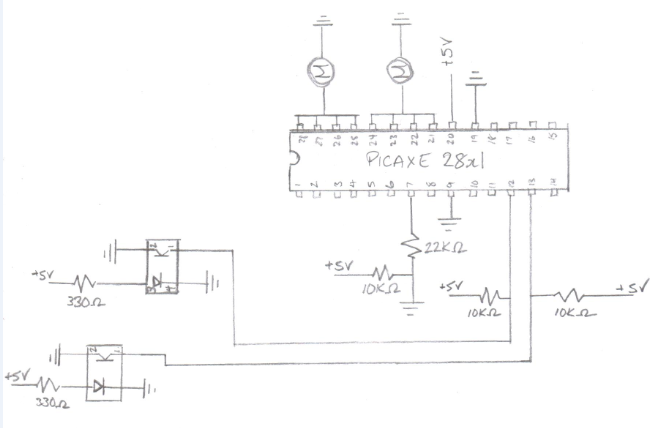 M M
+5V
28 27 26 25 24 23 22 21 20 19 18 17 16 15
PICAXE 28x1
1 2 3 4 5 6 7 8 9 10 11 12 13 14
22KΩ
+5V
10KΩ
+5V
10KΩ
+5V
10KΩ
2 1
+5V
330Ω
3 4
2 1
+5V
330Ω